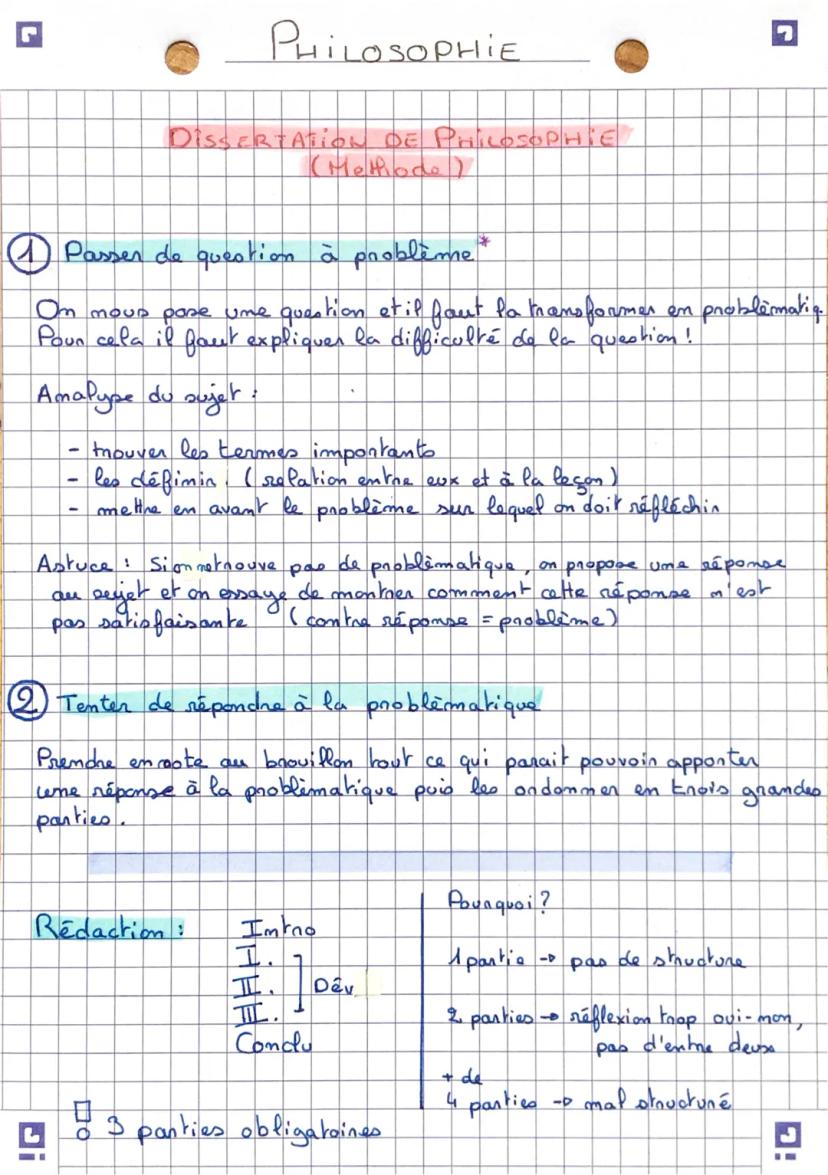 PHILOSOPHIE
DISSERTATION DE PHILOSOPHIE
(Méthode)
1 Passer de question à problème*
On nous pose une question et il faut la transformer en problèmatiq.
Pour cela il faut expliquer la difficulté de la question !
Analyse du sujet :
- trouver les termes importants
- les définir. (relation entre eux et à la leçon)
- mettre en avant le problème sur lequel on doit réfléchir
Astuce : Si on ne trouve pas de problèmatique, on propose une réponse
au sujet et on essaye de montrer comment cette réponse n'est
pas satisfaisante (contre réponse = problème)
2 Tenter de répondre à la problèmatique
Prendre en note au brouillon tout ce qui parait pouvoir apporter
une réponse à la problèmatique puis les ordonner en trois grandes
parties.
Rédaction :
Intro
I.
II.
III.
Dév
Conclu
Pourquoi ?
1 partie → pas de structure
2 parties → réflexion trop oui-non,
pas d'entre deux
+ de
4 parties → mal structuré
! 3 parties obligatoires